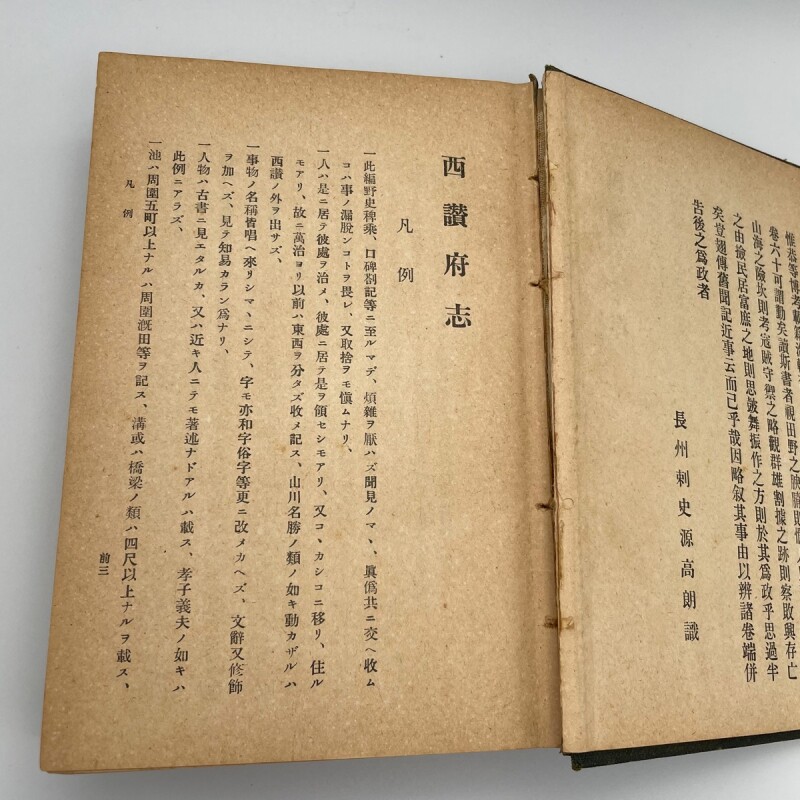 卷六十可謂勤矣讀斯書者視田野之
山海之險坎則考寇賊守禦之略觀群雄割據之跡則察敗興存亡
之由撿民居富庶之地則思皷舞振作之方則於其爲政乎思過半
矣豈翅傳舊聞記近事云而已乎哉因略叙其事由以辨諸卷端併
告後之爲政者
長州刺史源高朗識
西讃府志
凡例
一此編野史稗乘、口碑剳記等ニ至ルマデ、煩雜ヲ厭ハズ聞見ノマヽ、眞僞共ニ交ヘ收ム
コハ事ノ漏脫ンコトヲ畏レ、又取捨ヲモ愼ムナリ、
一人ハ是ニ居テ彼處ヲ治メ、彼處ニ居テ是ヲ領セシモアリ、又コヽカシコニ移リ、住ル
モアリ、故ニ萬治ヨリ以前ハ東西ヲ分タズ收メ記ス、山川名勝ノ類ノ如キ動カザルハ
西讃ノ外ヲ出サズ、
一事物ノ名稱皆唱ヘ來リシマヽニシテ、字モ亦和字俗字等更ニ改メカヘズ、文辭又修飾
ヲ加ヘズ、見テ知易カラン爲ナリ、
一人物ハ古書ニ見エタルカ、又ハ近キ人ニテモ著述ナドアルハ載ス、孝子義夫ノ如キハ
此例ニアラズ、
一池ハ周圍五町以上ナルハ周圍漑田等ヲ記ス、溝或ハ橋梁ノ類ハ四尺以上ナルヲ載ス、
凡例
前三